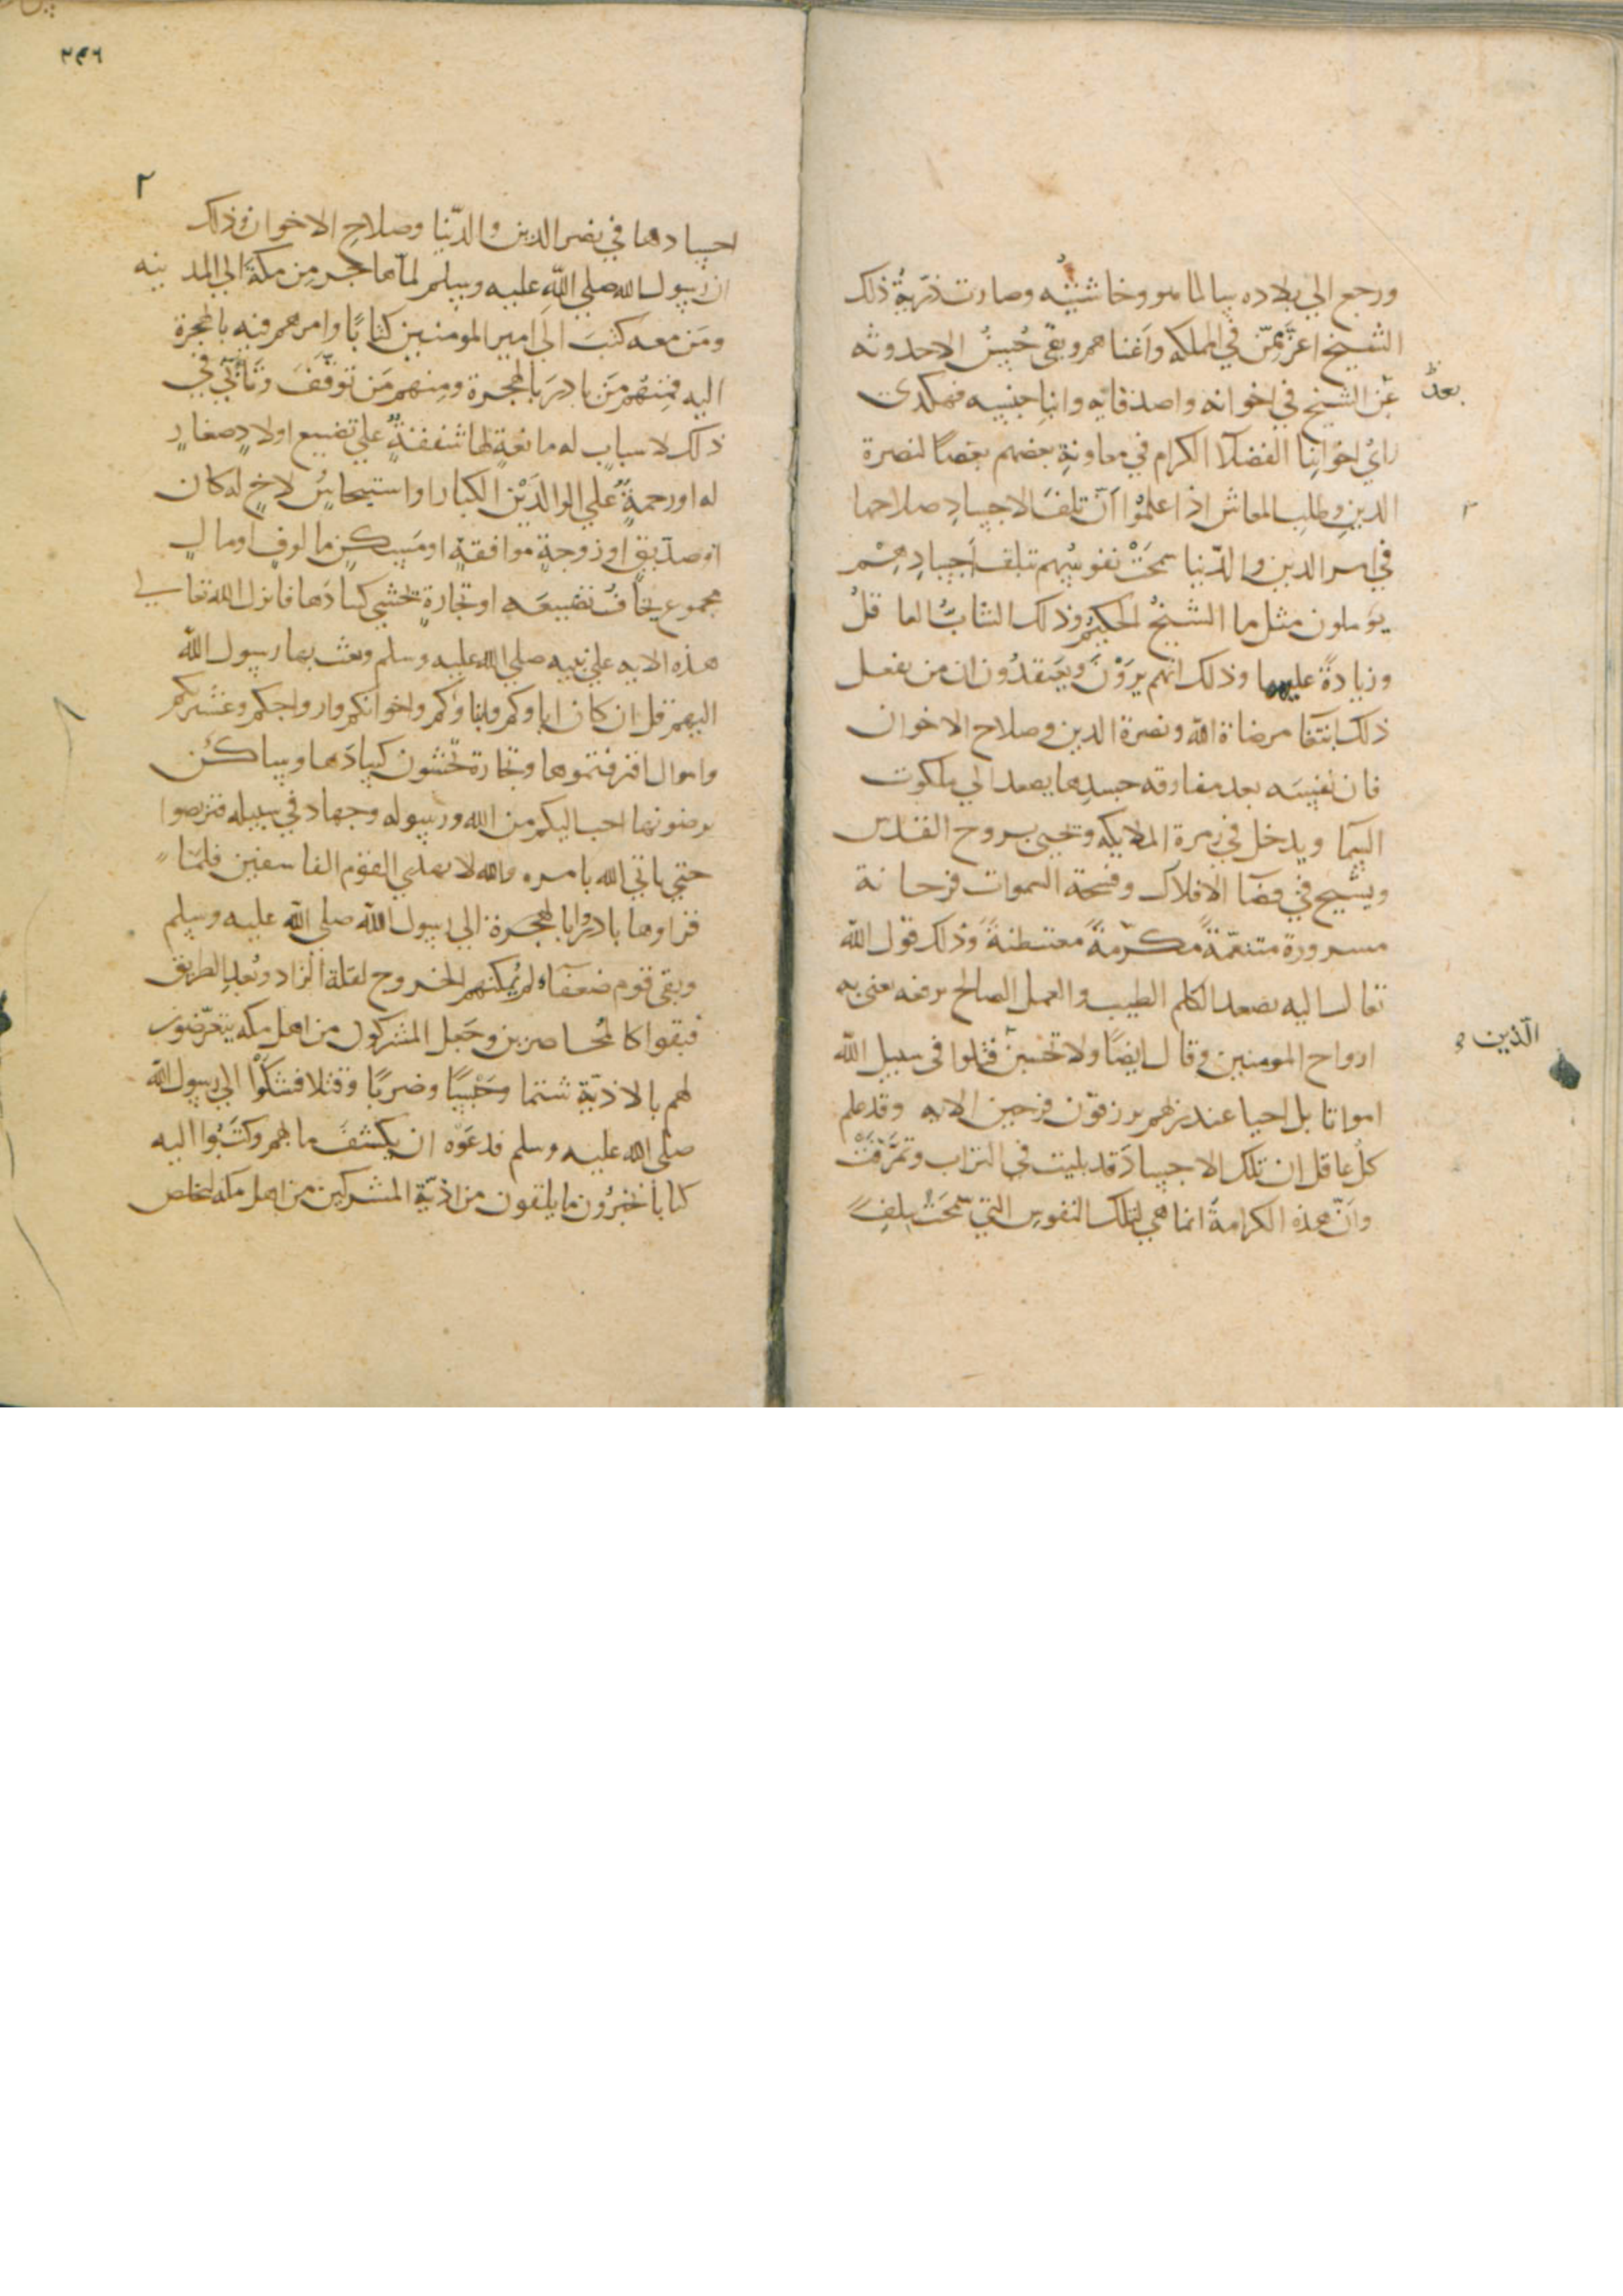 ورجع الي بلاده سالما هو وخاشيته وصارت ذرية ذلك
الشيخ اعز من في المملكه واغناهم وبقى حسن الاحدوثه
بعد
عن الشيخ في اخوانه واصدقايه وابنا جنسه فهكذى
راي اخواننا الفضلا الكرام في معاونة بعضهم بعضا لنصرة
الدين وطلب المعاش اذا علموا ان تلف الاجساد صلاحها
في امر الدين والدنيا سمحت نفوسهم بتلف اجسادهم
يوملون مثل ما الشيخ الحكيم وذلك الشاب العاقل
وزيادة عليهما وذلك انهم يرون ويعتقدون ان من يفعل
ذلك ابتغا مرضاة الله ونصرة الدين وصلاح الاخوان
فان نفسه بعد مفارقه جسدها يصعد الي ملكوت
السما ويدخل في زمرة الملايكه وتحيى بروح القدس
ويسيح في فضا الافلاك وفسحة السموات فرحانة
مسرورة متنعمة مكرمة مغتبطة وذلك قول الله
تعالى اليه يصعد الكلم الطيب والعمل الصالح يرفعه يعنى به
ارواح المومنين وقال ايضا ولا تحسبن قتلوا في سبيل الله
الذين
امواتا بل احيا عند ربهم يرزقون فرحين الايه وقد علم
كل عاقل ان تلك الاجساد قد بليت في التراب وتمزقت
وان هذه الكرامة انما هي لتلك النفوس التي سمحت بتلف
٢
اجسادها في نصر الدين والدنيا وصلاح الاخوان وذلك
ان رسول الله صلي الله عليه وسلم لما هاجر من مكة الي المدينه
ومن معه كتب الي امير المومنين كتابا وامرهم فيه بالهجرة
اليه فمنهم من بادر بالهجرة ومنهم من توقف وتأنى في
ذلك لاسباب له مانعة لها شفقة علي تضييع اولاد صغار
له او رحمة علي الوالدين الكبار او استيحاش لاخ له كان
او صديق او زوجة موافقة او مسكن مالوف او مال
مجموع يخاف تضييعه او تجارة تخشي كسادها فانزل الله تعالي
هذه الايه علي نبيه صلي الله عليه وسلم وبعث بها رسول الله
اليهم قل ان كان اباوكم وابناوكم واخوانكم وازواجكم وعشيرتكم
واموال اقترفتموها وتجارة تخشون كسادها ومساكن
ترضونها احب اليكم من الله ورسوله وجهاد في سبيله فتربصوا
حتي ياتي الله بامره والله لا يهدي القوم الفاسقين فلما
قراوها بادروا بالهجرة الي رسول الله صلى الله عليه وسلم
وبقى قوم ضعفاء لم يمكنهم الخروج لقلة الزاد وبعد الطريق
فبقوا كالمحاصرين وجعل المشركون من اهل مكه يتعرضون
لهم بالاذية شتما وحبسا وضربا وقتلا فشكوا الي رسول الله
صلى الله عليه وسلم فدعوه ان يكشف ما بهم وكتبوا اليه
كتابا يخبرون ما يلقون من اذية المشركين من اهل مكه لتخلص